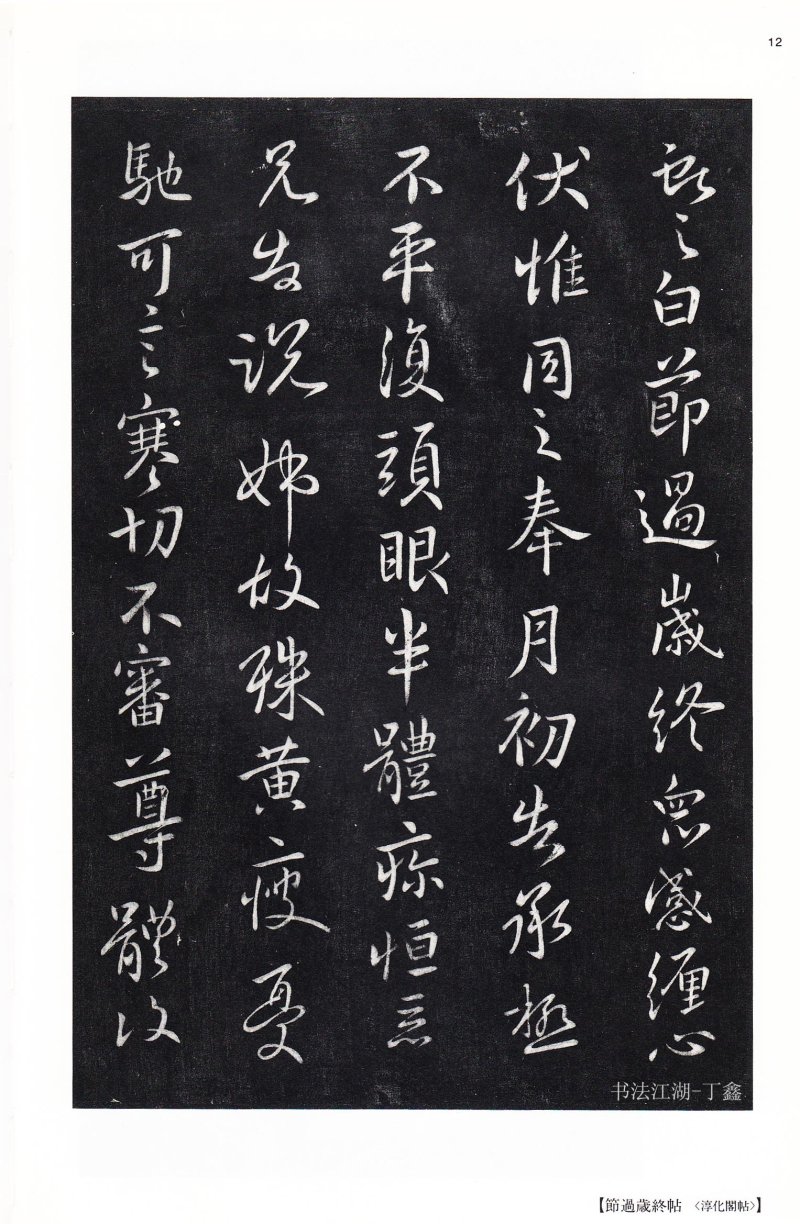 12
獻之白節過歲終眾感纏心
伏惟同之奉月初告承極
不平復頭眼半體疼恒惡
兄告說姊故殊黃瘦憂
馳可言寒切不審尊體復
书法江湖-丁鑫
【節過歲終帖 〈淳化閣帖〉】